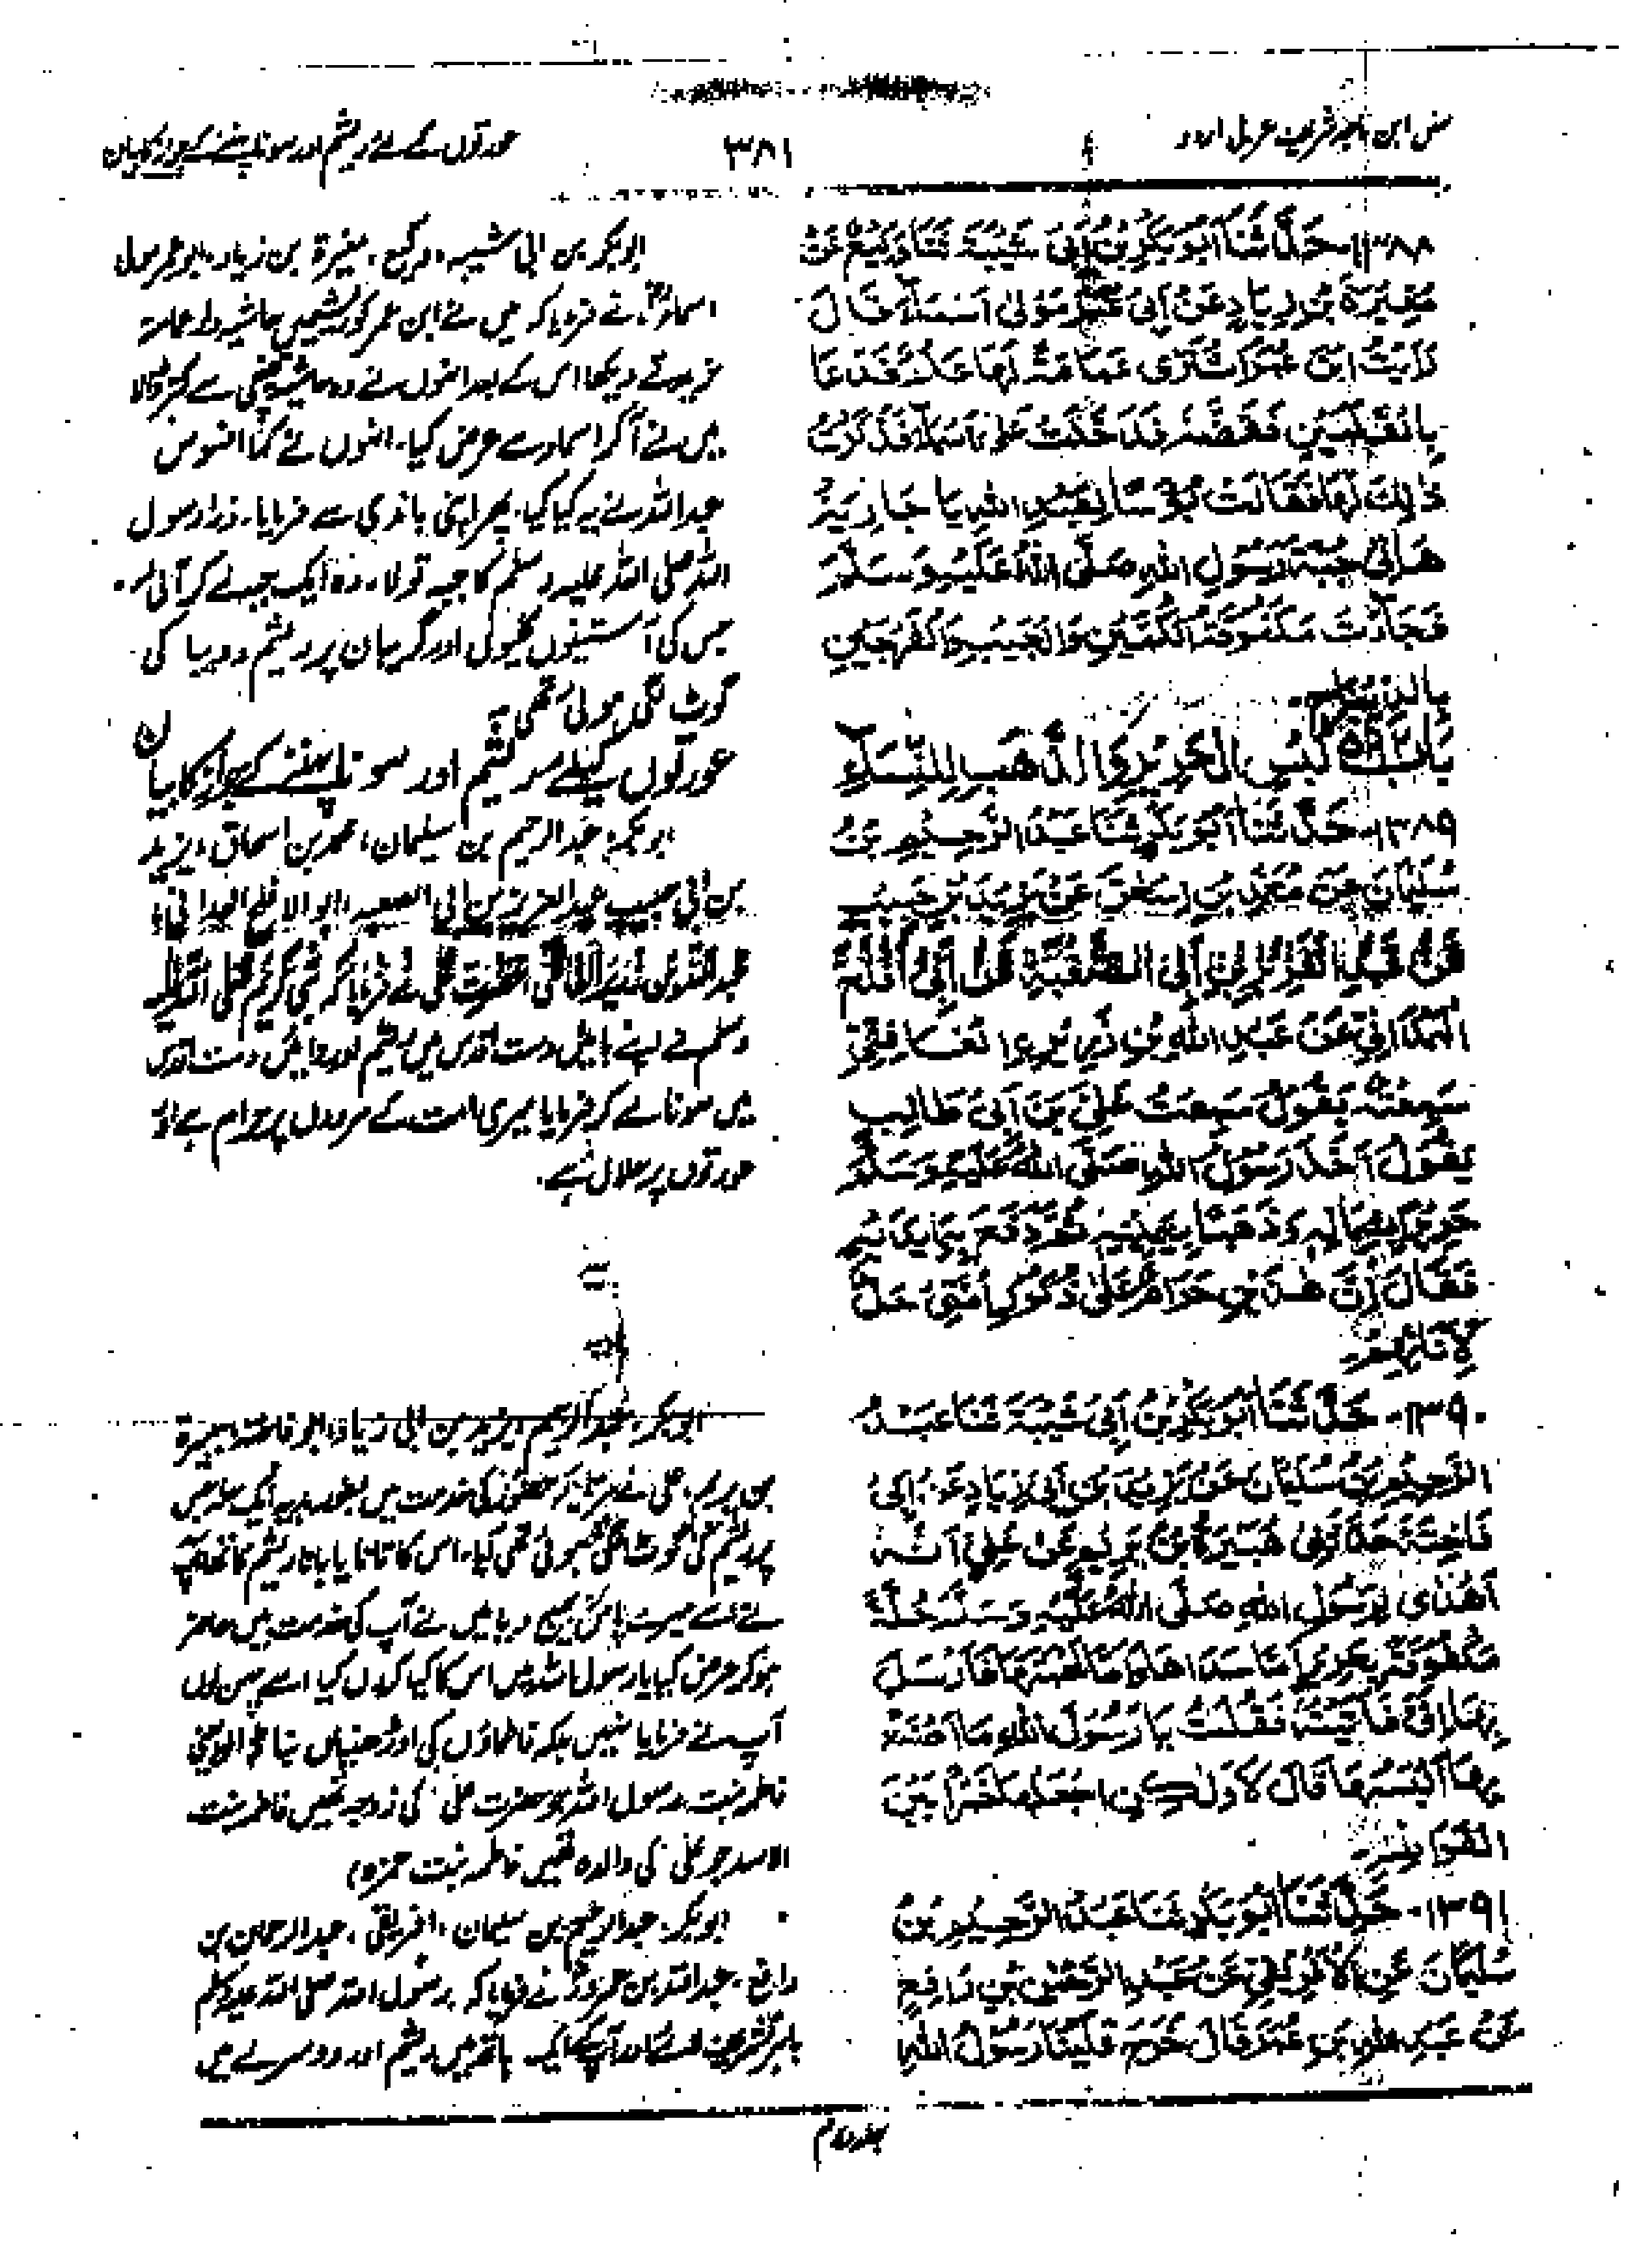 سنن ابن ماجہ شریف عربی اردو
۳۸۱
عورتوں کے لئے ریشم اور سونا پہننے کے جواز کا بیان
۱۳۸۸- حَدَّثَنَا اَبُوْبَكْرِ بْنُ اَبِیْ شَیْبَةَ ثَنَا وَكِیْعٌ عَنْ
مُغِیْرَةَ بْنِ زِیَادٍ عَنْ اَبِیْ عُمَرَ مَوْلٰی اَسْمَآءَ قَالَ
رَاَیْتُ ابْنَ عُمَرَ اشْتَرٰی عِمَامَةً لَهَا عَلَمٌ فَدَعَا
بِالْقَلَمَیْنِ فَقَصَّهُ فَدَخَلْتُ عَلٰی اَسْمَآءَ فَذَكَرْتُ
ذٰلِكَ لَهَا فَقَالَتْ بُؤْسًا لِعَبْدِ اللّٰهِ یَا جَارِیَةُ
هَاتِیْ جُبَّةَ رَسُوْلِ اللّٰهِ صَلَّی اللّٰهُ عَلَیْهِ وَسَلَّمَ
فَجَآءَتْ مَكْفُوْفَةَ الْكُمَّیْنِ وَالْجَیْبِ وَالْفَرْجَیْنِ
بِالدِّیْبَاجِ
بَابُ لُبْسِ الْحَرِیْرِ وَالذَّهَبِ لِلنِّسَآءِ
۱۳۸۹- حَدَّثَنَا اَبُوْبَكْرٍ ثَنَا عَبْدُ الرَّحِیْمِ بْنُ
سُلَیْمَانَ عَنْ مُحَمَّدِ بْنِ اِسْحٰقَ عَنْ یَزِیْدَ بْنِ حَبِیْبٍ
عَنْ عَبْدِ الْعَزِیْزِ بْنِ اَبِی الصَّعْبَةِ عَنْ اَبِیْ اَفْلَحَ
الْهَمْدَانِیِّ عَنْ عَبْدِ اللّٰهِ بْنِ زُرَیْرِ الْغَافِقِیِّ
سَمِعْتُهُ یَقُوْلُ سَمِعْتُ عَلِیَّ بْنَ اَبِیْ طَالِبٍ
یَقُوْلُ اَخَذَ رَسُوْلُ اللّٰهِ صَلَّی اللّٰهُ عَلَیْهِ وَسَلَّمَ
حَرِیْرًا بِشِمَالِهِ وَذَهَبًا بِیَمِیْنِهِ ثُمَّ رَفَعَ بِهِمَا یَدَیْهِ
فَقَالَ اِنَّ هٰذَیْنِ حَرَامٌ عَلٰی ذُكُوْرِ اُمَّتِیْ حِلٌّ
لِاُنَاثِهِمْ
۱۳۹۰- حَدَّثَنَا اَبُوْبَكْرِ بْنُ اَبِیْ شَیْبَةَ ثَنَا عَبْدُ
الرَّحِیْمِ بْنُ سُلَیْمَانَ عَنْ یَزِیْدَ بْنِ اَبِیْ زِیَادٍ عَنْ اَبِیْ
فَاخِتَةَ حَدَّثَنِیْ هُبَیْرَةُ بْنُ یَرِیْمَ عَنْ عَلِیٍّ اَنَّهُ
اُهْدِیَ لِرَسُوْلِ اللّٰهِ صَلَّی اللّٰهُ عَلَیْهِ وَسَلَّمَ حُلَّةٌ
مَكْفُوْفَةٌ بِحَرِیْرٍ اِمَّا سَدَاهَا وَاِمَّا لُحْمَتُهَا فَاَرْسَلَ
بِهَا اِلَیَّ فَاَتَیْتُهُ فَقُلْتُ یَا رَسُوْلَ اللّٰهِ مَا اَصْنَعُ
بِهَا اَلْبَسُهَا قَالَ لَا وَلٰكِنِ اجْعَلْهَا خُمُرًا بَیْنَ
الْفَوَاطِمِ
۱۳۹۱- حَدَّثَنَا اَبُوْبَكْرٍ ثَنَا عَبْدُ الرَّحِیْمِ بْنُ
سُلَیْمَانَ عَنِ الْاَفْرِیْقِیِّ عَنْ عَبْدِ الرَّحْمٰنِ بْنِ رَافِعٍ
عَنْ عَبْدِ اللّٰهِ بْنِ عُمَرَ قَالَ خَرَجَ عَلَیْنَا رَسُوْلُ اللّٰهِ
ابوبکر بن ابی شیبہ، وکیع، مغیرۃ بن زیاد، ابو عمر مولی
اسماءؓ نے فرمایا کہ میں نے ابن عمر کو ریشمیں حاشیہ والا عمامہ
خریدتے دیکھا اس کے بعد انہوں نے وہ حاشیہ قینچی سے کتر ڈالا
میں نے آکر اسماء سے عرض کیا۔ انہوں نے کہا افسوس
عبداللہ نے یہ کیا کیا۔ پھر اپنی باندی سے فرمایا۔ ذرا رسول
اللہ صلی اللہ علیہ وسلم کا جبہ تو لا۔ وہ ایک جبہ لے کر آئی۔
جس کی آستینوں کلیوں اور گریبان پر ریشم و دیبا کی
گوٹ لگی ہوئی تھی
عورتوں کیلئے ریشم اور سونا پہننے کے جواز کا بیان
ابوبکر، عبدالرحیم بن سلیمان، محمد بن اسحاق، یزید
بن ابی حبیب، عبدالعزیز بن ابی الصعبہ، ابو الافلح الہمدانی،
عبداللہ بن زریر الغافقی، حضرت علی نے فرمایا کہ نبی کریم صلی اللہ علیہ
وسلم نے اپنے بائیں دست اقدس میں ریشم اور دائیں دست اقدس
میں سونا لے کر فرمایا میری امت کے مردوں پر حرام ہے اور
عورتوں پر حلال ہے۔
ابوبکر، عبدالرحیم، یزید بن ابی زیاد، ابو فاختہ، ہبیرۃ
بن یریم، علی نے فرمایا کہ حضور کی خدمت میں بطور ہدیہ ایک حلہ جس
پر ریشم کی گوٹ لگی ہوئی تھی آیا۔ اس کا تانا یا بانا ریشم کا تھا آپ
نے اسے میرے پاس بھیج دیا میں نے آپ کی خدمت میں حاضر
ہوکر عرض کیا یا رسول اللہ میں اس کا کیا کروں کیا اسے پہن لوں
آپ نے فرمایا نہیں بلکہ فاطماؤں کی اوڑھنیاں بنا ڈالو یعنی
فاطمہ بنت رسول اللہ جو حضرت علی کی زوجہ تھیں فاطمہ بنت
الاسد جو علی کی والدہ تھیں فاطمہ بنت حمزہ)
ابوبکر، عبدالرحیم بن سلیمان، افریقی، عبدالرحمان بن
رافع، عبداللہ بن عمروؓ نے فرمایا کہ رسول اللہ صلی اللہ علیہ وسلم
باہر تشریف لائے اور آپ کے ایک ہاتھ میں ریشم اور دوسرے میں